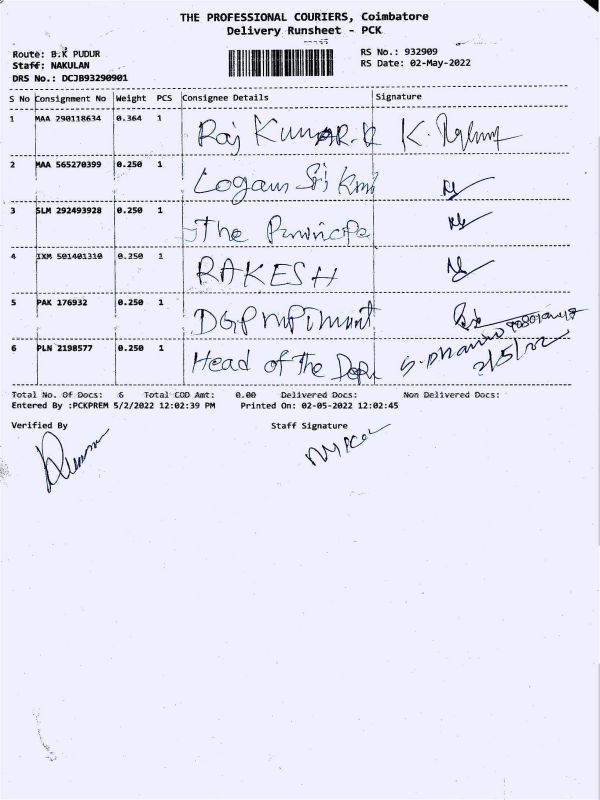 THE PROFESSIONAL COURIERS, Coimbatore
Delivery Runsheet - PCK
Route: B.K PUDUR
Staff: NAKULAN
DRS No.: DCJB93290901
RS No.: 932909
RS Date: 02-May-2022
S No Consignment No Weight PCS Consignee Details Signature
1 MAA 290118634 0.364 1 Raj Kumar.R K.
2 MAA 565270399 0.250 1 Logan Sri
3 SLM 292493928 0.250 1 The
4 IXM 501401310 0.250 1 RAKESH
5 PAK 176932 0.250 1
6 PLN 2198577 0.250 1 Head of The 2/5/22
Total No. Of Docs: 6 Total COD Amt: 0.00 Delivered Docs: Non Delivered Docs:
Entered By :PCKPREM 5/2/2022 12:02:39 PM Printed On: 02-05-2022 12:02:45
Verified By Staff Signature